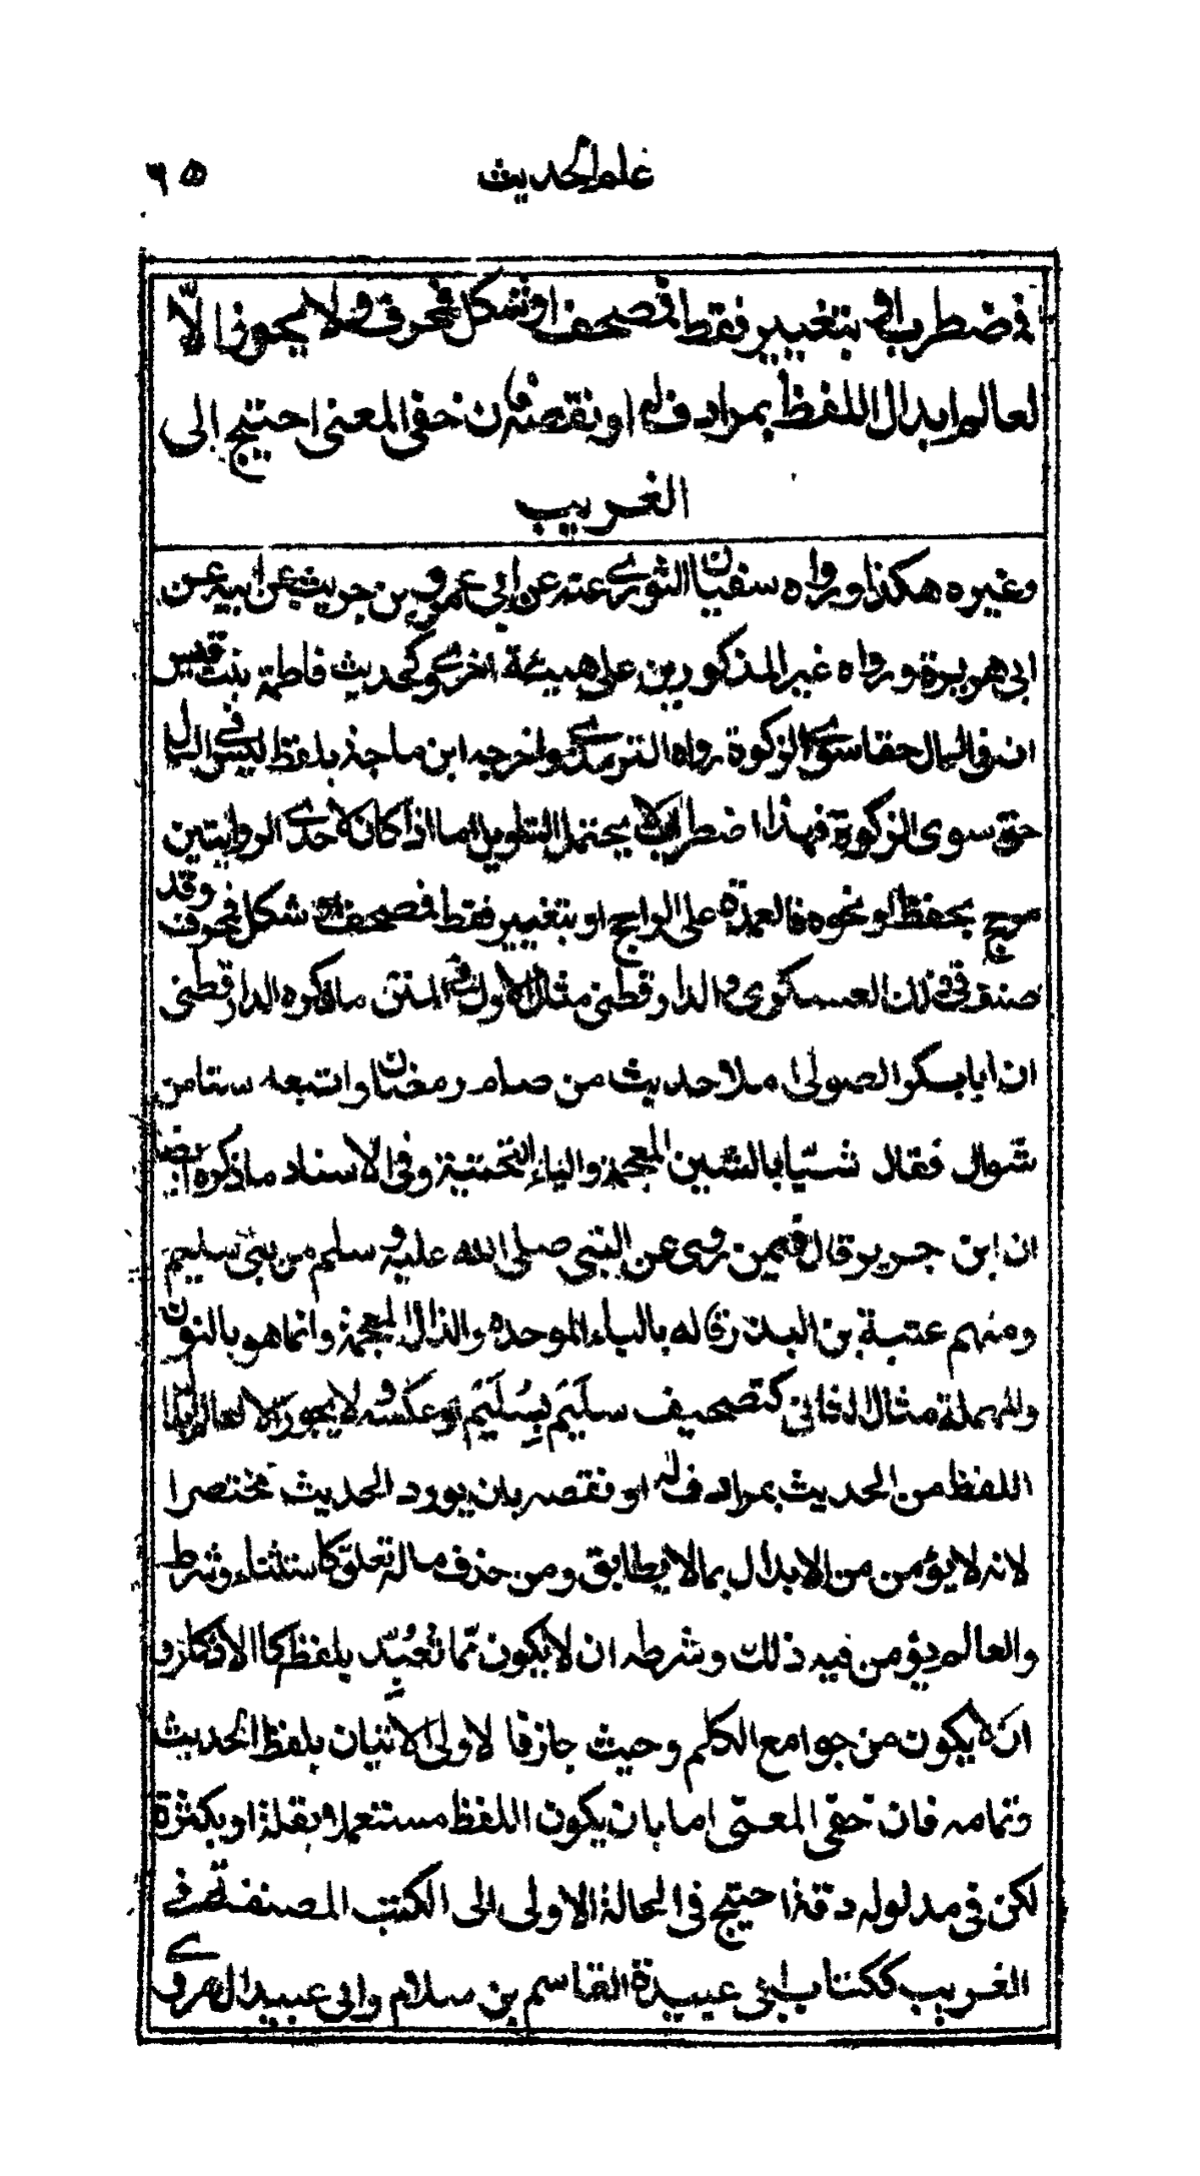 علم الحديث ٦٥
فمضطرب او بتغيير نقط فمصحف او شكل فمحرف ولا يجوز الا
لعالم ابدال اللفظ بمرادف له او نقصه فان خفي المعنى احتيج الى
الغريب
وغيره هكذا ورواه سفيان الثوري عنه عن ابي عمرو بن حريث عن ابيه عن
ابي هريرة ورواه غير المذكورين على هيئة اخرى وكحديث فاطمة بنت قيس
ان في المال حقا سوى الزكوة رواه الترمذي واخرجه ابن ماجة بلفظ ليس في المال
حق سوى الزكوة فهذا اضطراب لا يحتمل التاويل اما اذا كان لاحدى الروايتين
مرجح بحفظ او نحوه فالعمدة على الراجح او بتغيير نقط فمصحف او شكل فمحرف وقد
صنف في ذلك العسكري والدارقطني مثال الاول في المتن ما ذكره الدارقطني
ان ابا بكر الصولي املا حديث من صام رمضان واتبعه ستا من
شوال فقال شيّا بالشين المعجمة والياء التحتية وفي الاسناد ما ذكره ايضا
ان ابن جرير قال فيمن روى عن النبي صلى الله عليه وسلم من بني سليم
ومنهم عتبة بن البذر قاله بالباء الموحده والذال المعجمة وانما هو بالنون
والمهملة مثال الثاني كتصحيف سَلِيْم بِسُلَيْم او عكسه ولا يجوز الا لعالم ابدال
اللفظ من الحديث بمرادف له او نقصه بان يورد الحديث مختصرا
لانه لا يؤمن من الابدال بما لا يطابق ومن حذف ماله تعلق كاستثناء وشرط
والعالم يؤمن فيه ذلك وشرطه ان لا يكون مما تُعُبِّد بلفظه كالاذكار و
ان لا يكون من جوامع الكلم وحيث جاز فا لاولى الاتيان بلفظ الحديث
وتمامه فان خفي المعنى اما بان يكون اللفظ مستعملا بقلة او بكثرة
لكن في مدلوله دقة احتيج في الحالة الاولى الى الكتب المصنفة في
الغريب ككتاب ابي عبيدة القاسم بن سلام وابي عبيد الهروي